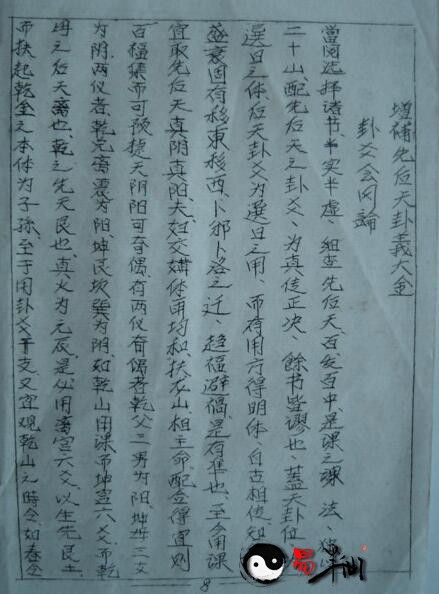 增補先后天卦義大全
卦爻会冈論
當阅选择诸书半实半虚、細查先后天、百发百中是课之课法、独以
二十山、配先后天之卦爻、为真傳正决、餘书皆謬也、蓋天卦位
选日之体、后天卦爻为選日之用、而存用方得明体、自古相傳、知
盛衰固有移東移西、卜邪卜洛之迁、趋福避禍、是有焦也、至会用课
宜取先后天真阴真阳、夫妇交媾、体用均和、扶龙山、相主命配合得宜则
百福集而可预捷、天阴阳可奇偶、有两仪奇偶者、乾父三男为阳、坤母三女
为阴、两仪者、乾兑离震为阳、坤艮坎巽为阴、如乾山用课而坤宫六爻、而乾
丹之后天离也、乾之先天艮也、真火为元辰、是必用离宫六爻、以生先艮土
而扶起乾金之本体为子孫、至于用卦爻干支、又宜观乾山之時令、如春令
8
易